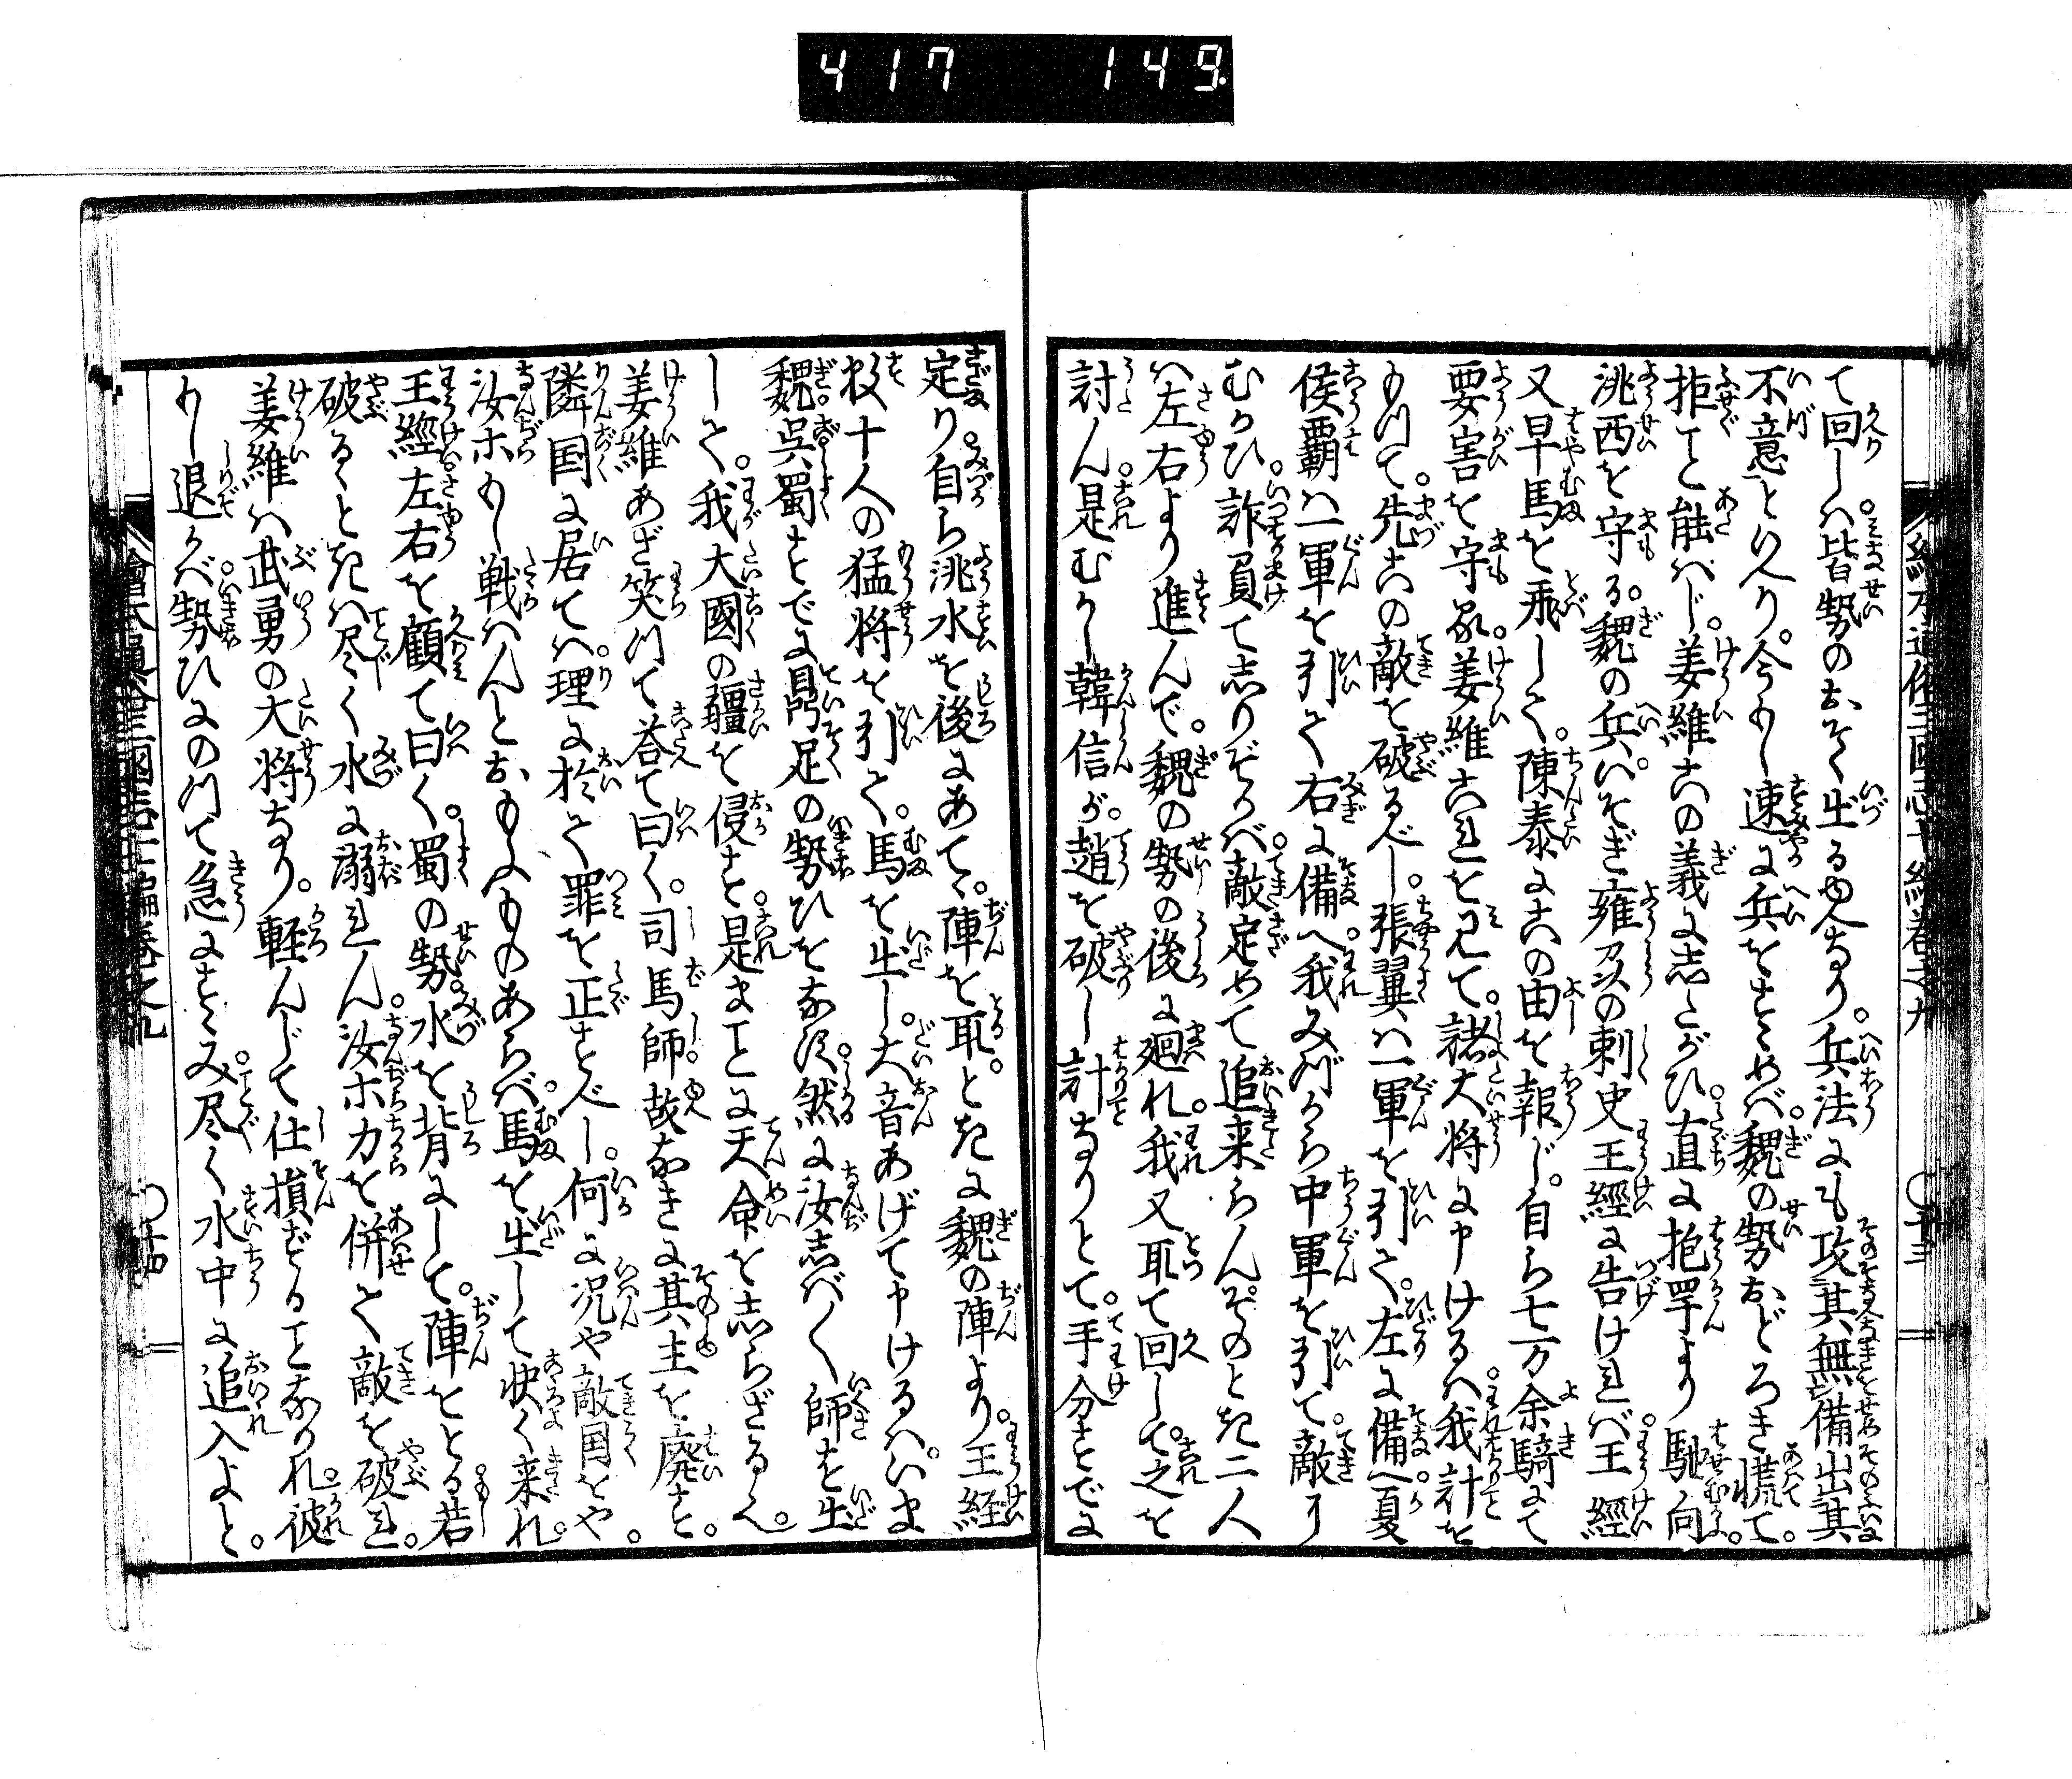 417 149.
て回しハ皆勢のおそく出るゆへなり。兵法にも攻其無備出其
不意といへり。今もし速に兵をすゝめバ。魏の勢おどろき慌て。
拒こと能ハじ。姜維この義にしたがひ。直に抱罕より馳向ふ。
洮西を守る。魏の兵。いそぎ雍州の刺史王經に告けれバ。王經
又早馬を飛して。陳泰にこの由を報じ。自ら七万余騎にて
要害を守る。姜維これを見て。諸大将に申けるハ。我計を
もつて。先この敵を破るべし。張翼ハ一軍を引て。左に備へ。夏
侯覇ハ一軍を引て右に備へ。我みづから中軍を引て。敵に
むかひ。詐負てしりぞかバ。敵定めて追来らん。そのとき二人
ハ左右より進んで。魏の勢の後に廻れ。我又取て回して。之を
討ん。是むかし韓信が。趙を破し計なりとて。手分すでに
定り。自ら洮水を後にあて。陣を取。ときに魏の陣より。王経
数十人の猛将を引て。馬を出し。大音あげて申けるハ。いま
魏。呉。蜀。すでに鼎足の勢ひをなす。然に汝しバ〱師を出
して。我大國の疆を侵す。是まことに天命をしらざるゆへ。
姜維あざ笑つて荅て曰く。司馬師。故なきに其主を廃す。
隣国に居てハ。理に於て罪を正すべし。何に況や敵国をや。
汝ホもし戦ハんとおもふものあらバ。馬を出して快く来れ。
王經左右を顧て曰く。蜀の勢。水を背にして。陣をとる。若
破るゝときハ尽く水に溺れん。汝ホ力を併て敵を破れ。
姜維ハ武勇の大将なり。軽んじて仕損ずることなかれ。彼
もし退かバ。勢ひにのつて急にすゝみ。尽く水中に追入よと。